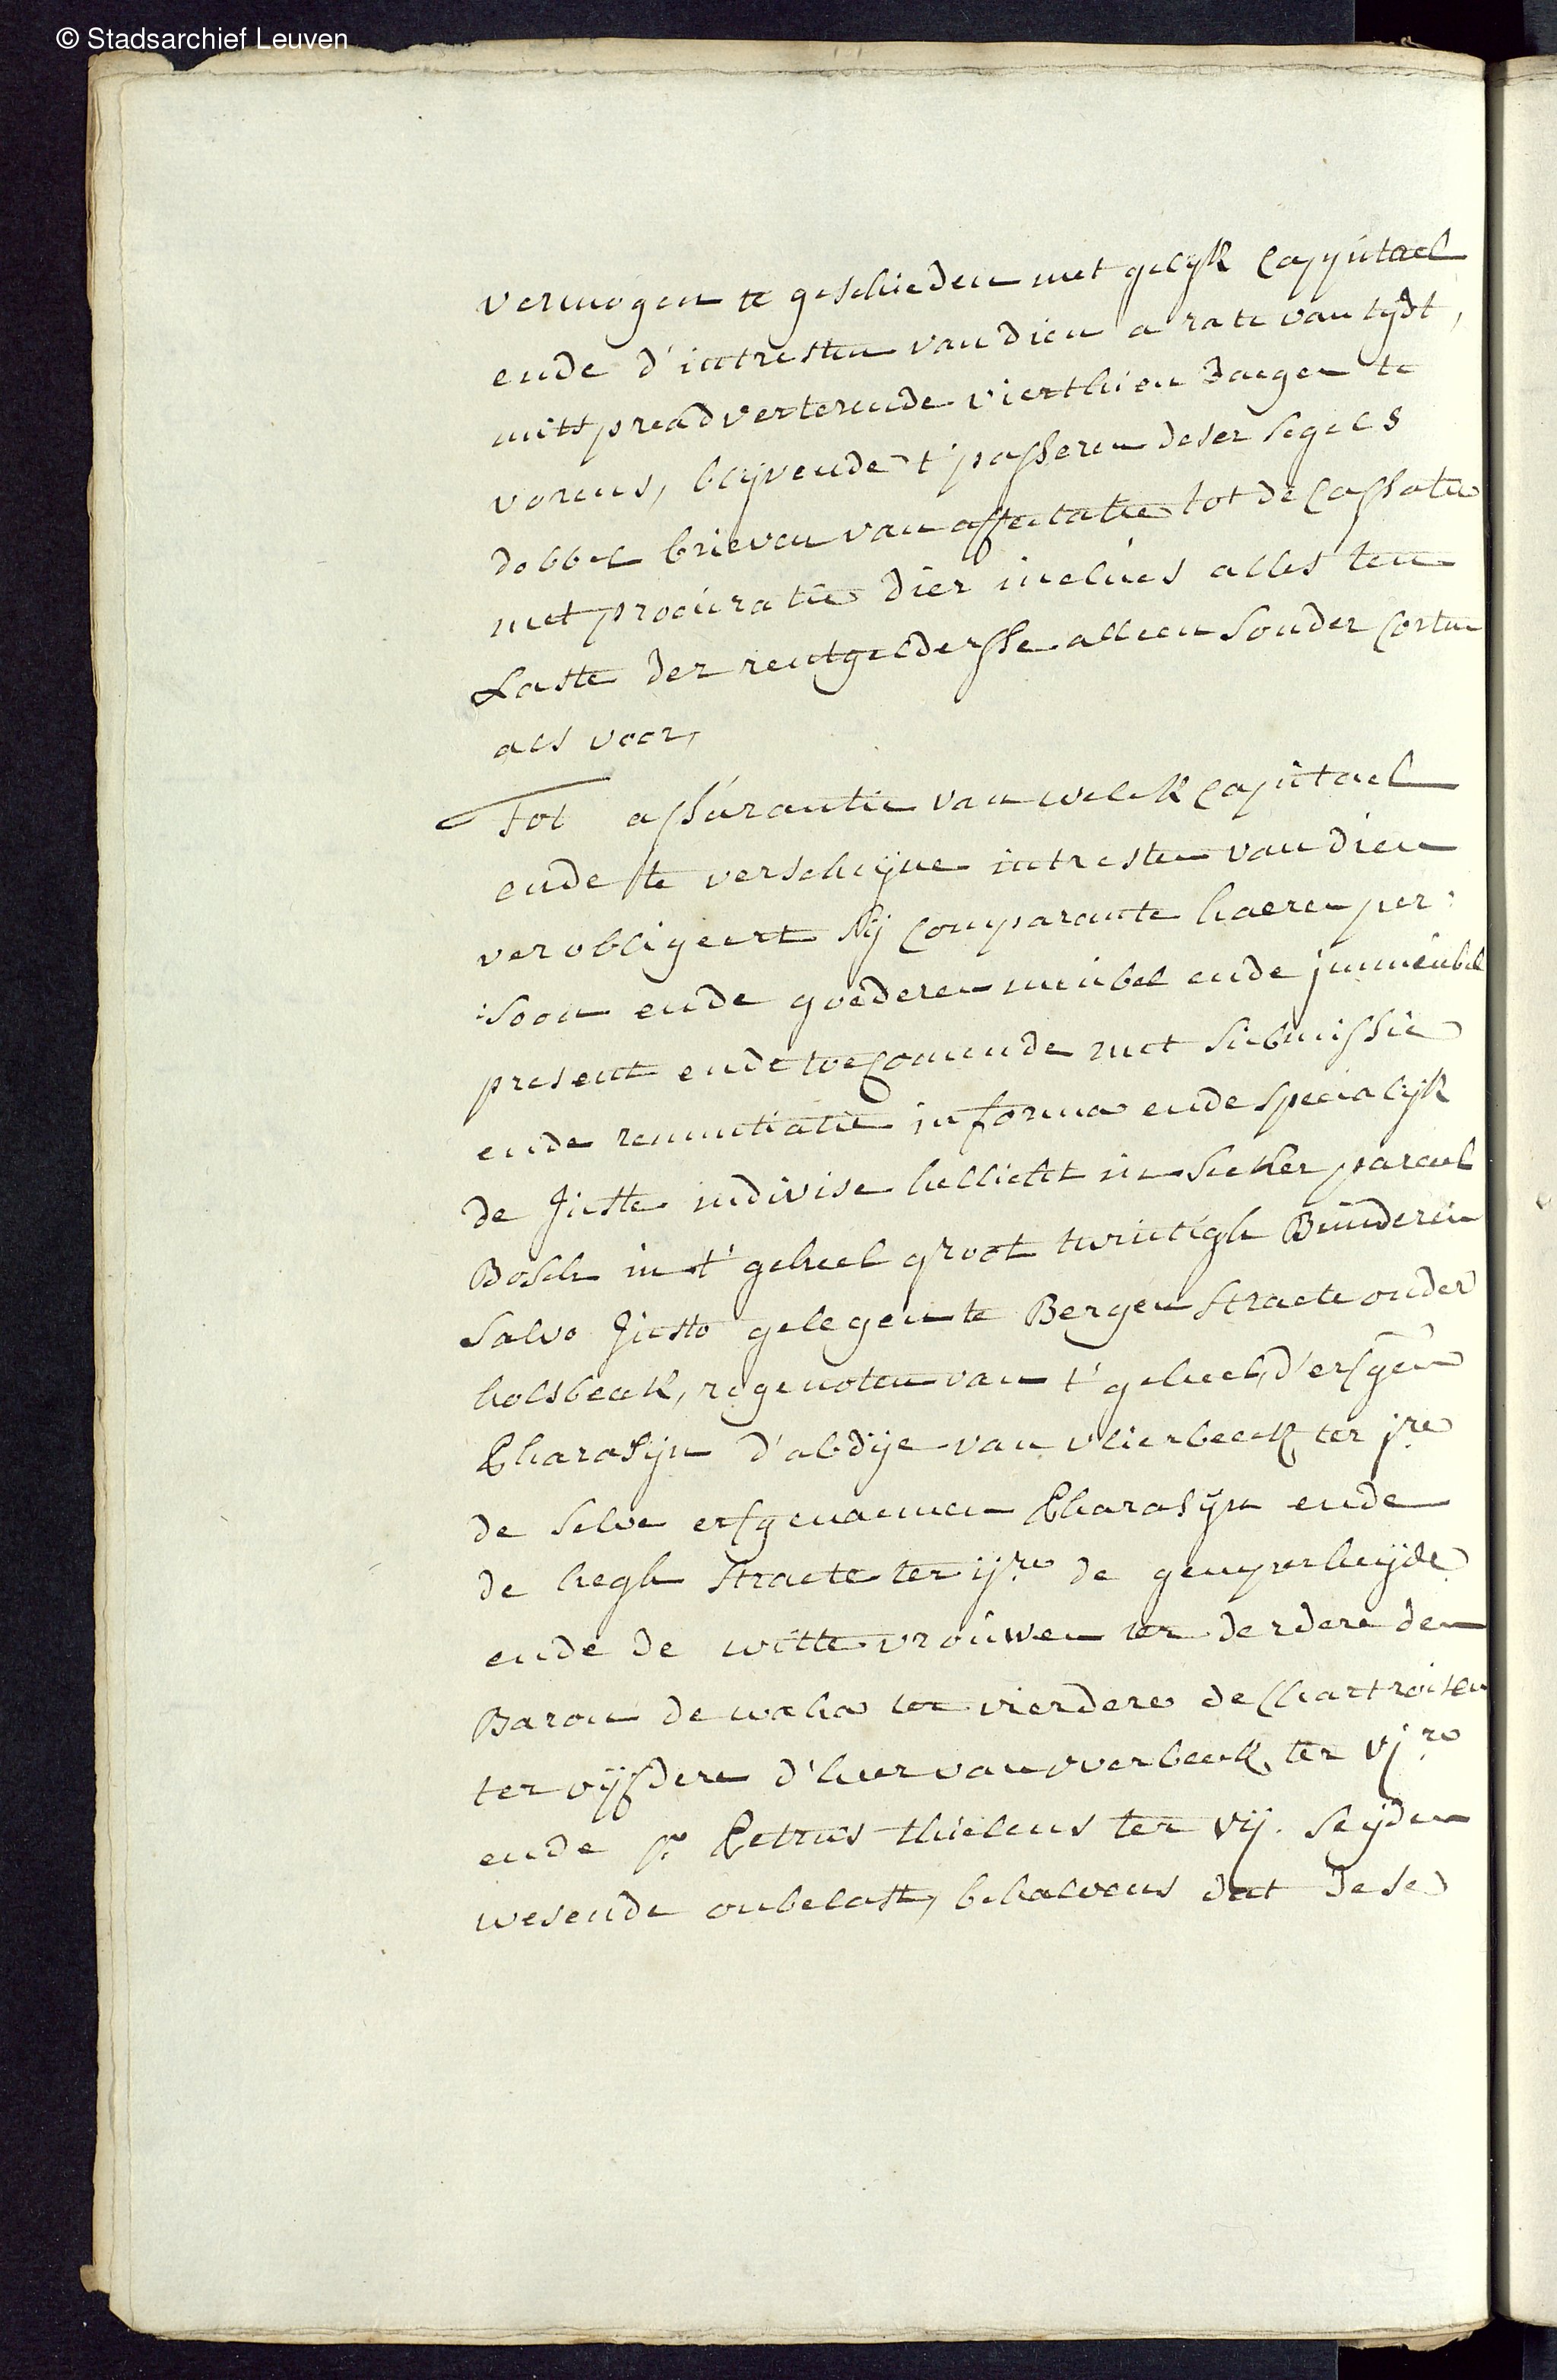 © Stadsarchief Leuven
vermogen te geschieden met gelyk Cappitael
ende d'intresten van dien a rate van tydt,
mits preadverterende vierthien daegen te
vorens, blijvende t'passeren deser segels
dobbel brieven van affectatie tot de Cassatie
met procuratie dier incluis alles ten
Laste der rentgeldersse alleen sonder Corten
als voor,
Tot assurantie van welck Capitael
ende te verschijne intresten van dien
verobligeert sij Comparante haeren per:
:soon ende goederen meubel ende immeubel
present ende toecomende met submissie
ende renuntiatie in forma ende specialijk
de juste indivise hellicht in seeker parceel
Bosch in t' geheel groot twintigh Bunderen
salvo justo gelegen te Bergen straete onder
holsbeeck, regenoten van t' geheel, d'erfgen
Charasyn d'abdije van vlierbeeck ter jre
de selve erfgenaemen Charasyn ende
de hegh straete ter ijre de gempenheijde
ende de witte vrouwen ter derdere den
Baron de waha ter vierdere de Chartroisen
ter vijfdere d'heer van overbeeck ter vjre
ende sr Petrus thielens ter vij. seijden
wesende onbelast, behalvens dat dese